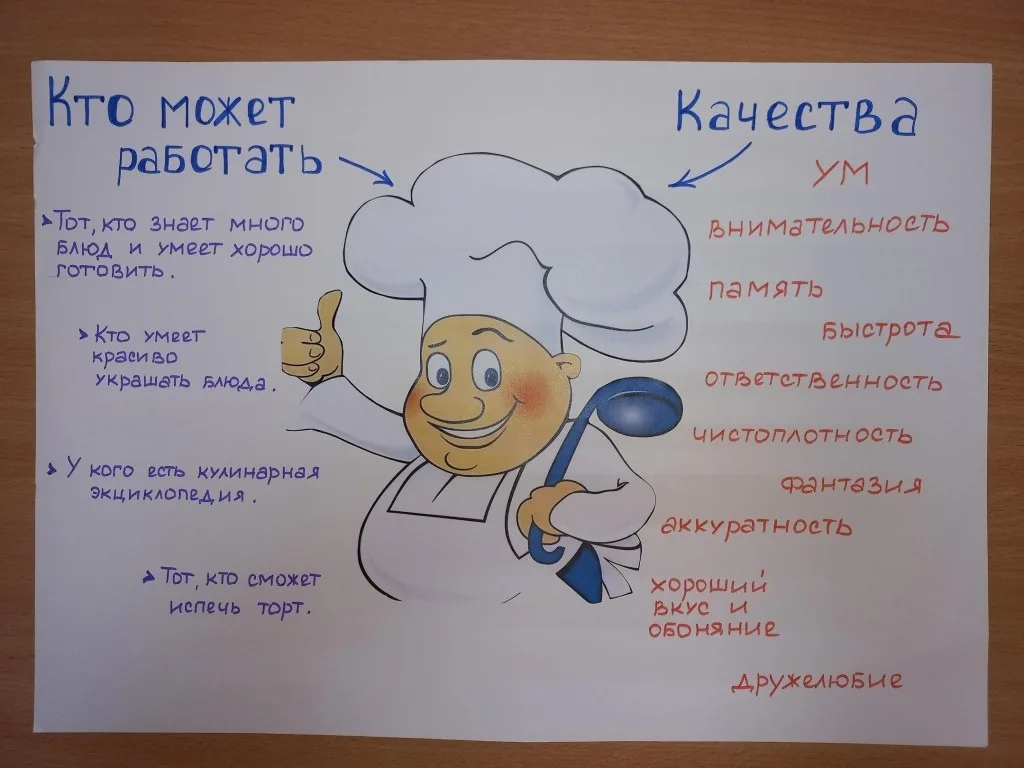 Кто может
работать
Тот, кто знает много
блюд и умеет хорошо
готовить.
Кто умеет
красиво
украшать блюда.
У кого есть кулинарная
экциклопедия.
Тот, кто сможет
испечь торт.
Качества
ум
внимательность
память
быстрота
ответственность
чистоплотность
фантазия
аккуратность
хороший
вкус и
обоняние
дружелюбие